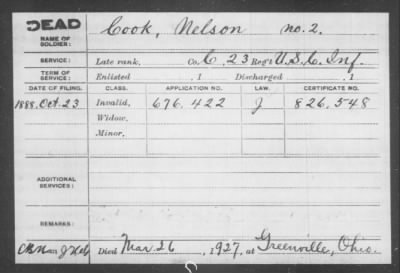 DEAD
NAME OF SOLDIER: Cook, Nelson no. 2.
SERVICE: Late rank, Co. C, 23 Reg't U.S.C. Inf.
TERM OF SERVICE: Enlisted , 1 Discharged , 1
DATE OF FILING. CLASS. APPLICATION NO. LAW. CERTIFICATE NO.
1888. Oct. 23 Invalid, 676,422 J 826,548
Widow,
Minor,
ADDITIONAL SERVICES:
REMARKS:
Died Mar. 26, 1927, at Greenville, Ohio.